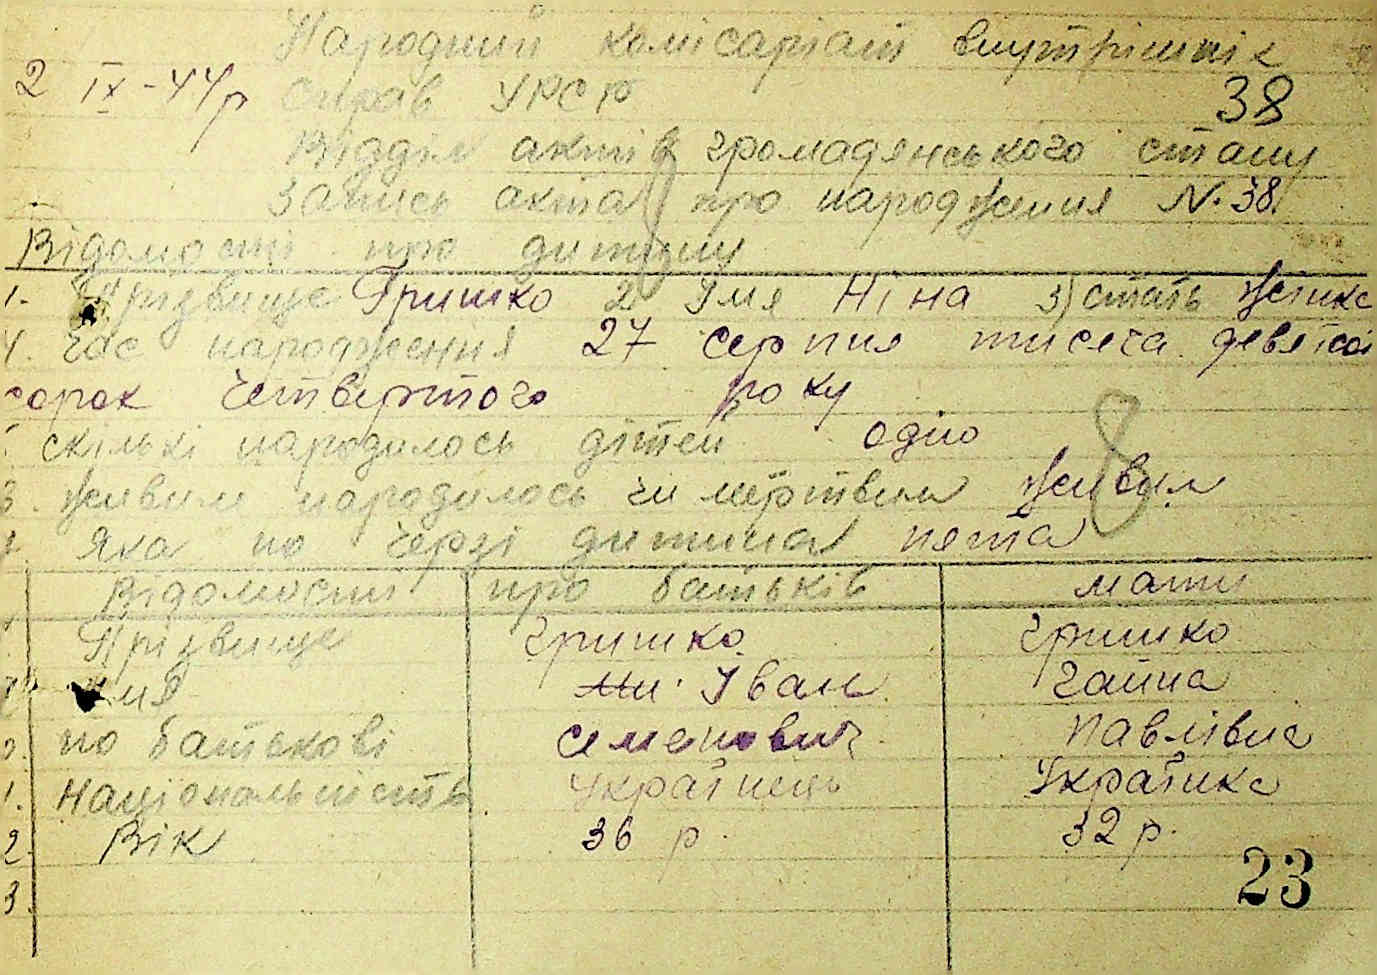 Народний комісаріат внутрішніх
2 IX-44р Справ УРСР 38
Відділ актів громадянського стану
Запись акта про народження N. 38.
Відомості про дитину
1. Прізвище Гришко 2 Імя Ніна 3) стать Жінка
4. Час народження 27 серпня тисяча девятсот
сорок четвертого року
скількі народилось дітей одно
Живим народилось чи мертвим Живим
Яка по черзі дитина пята
Відомости про батьків мати
Прізвище Гришко Гришко
Імя Іван Ганна
по батькові Семенович Павлівна
1. Національність Українець Українка
2. Вік 36 р. 32 р.
3. 23